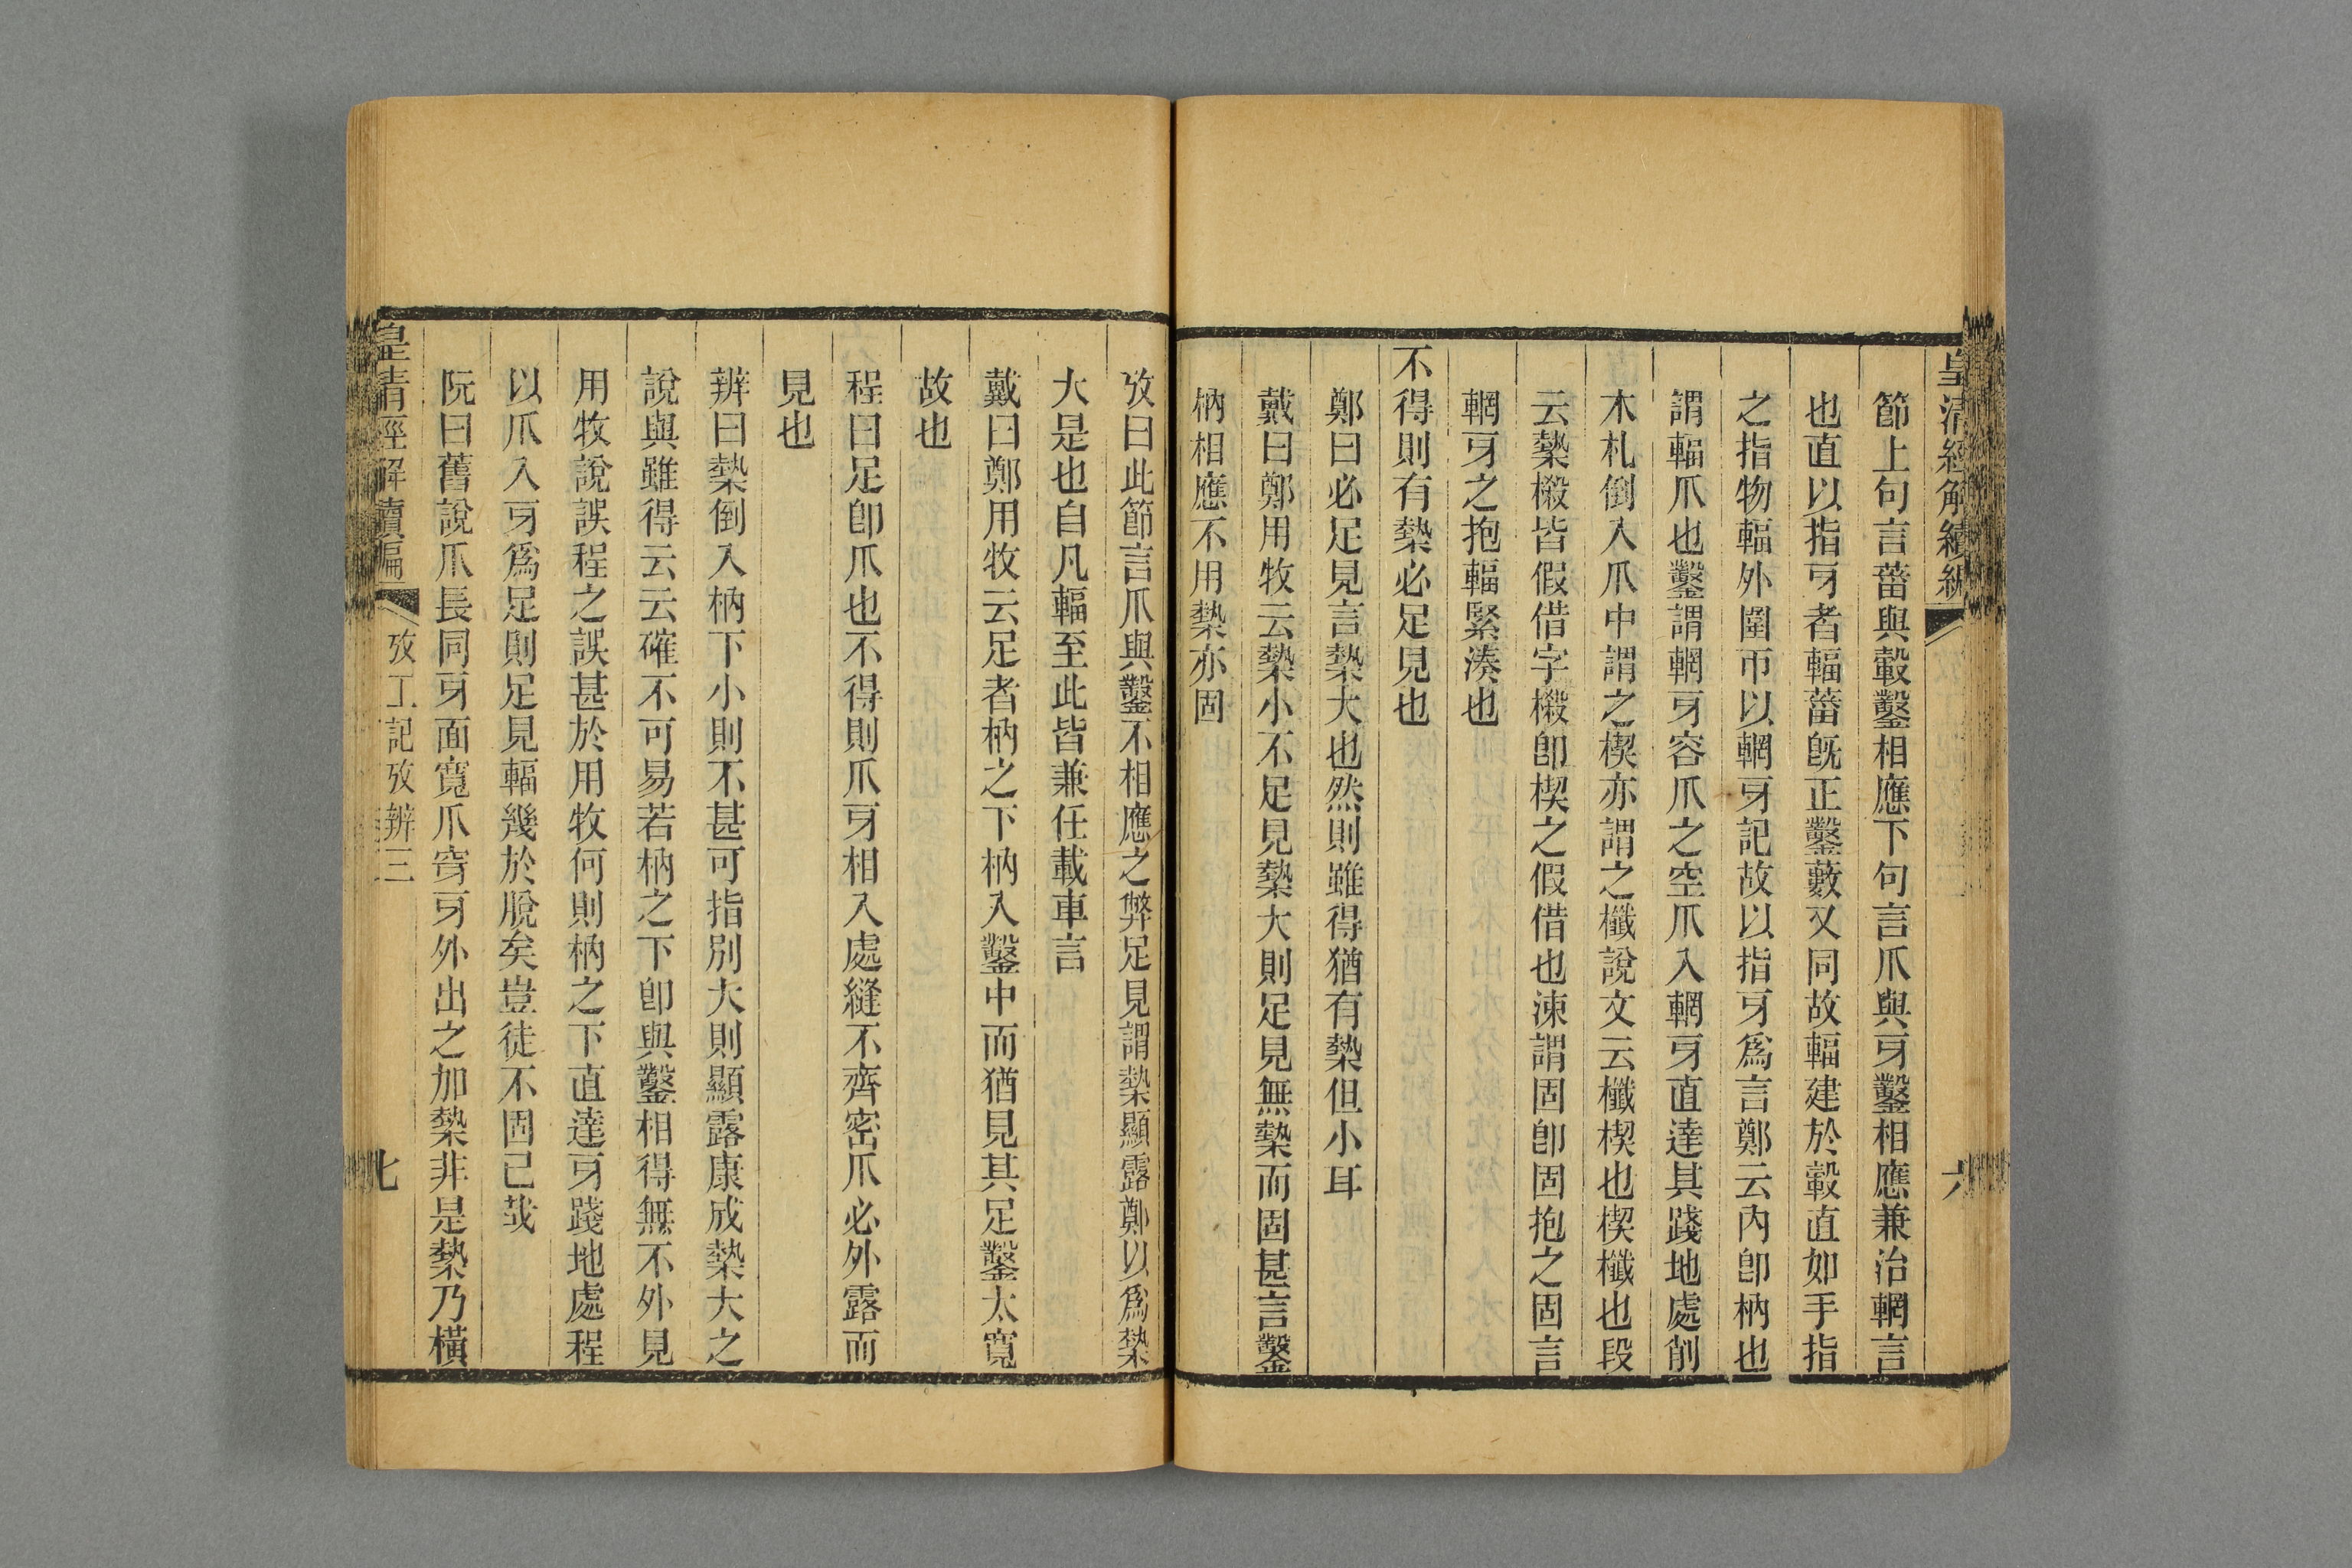 皇清經解續編
六
節上句言菑與轂鑿相應下句言爪與牙鑿相應兼治輞言
也直以指牙者輻菑旣正鑿藪又同故輻建於轂直如手指
之指物輻外圍帀以輞牙記故以指牙爲言鄭云內卽枘也
謂輻爪也鑿謂輞牙容爪之空爪入輞牙直達其踐地處削
木札倒入爪中謂之楔亦謂之櫼說文云櫼楔也楔櫼也段
云槷樧皆假借字樧卽楔之假借也涑謂固卽固抱之固言
輞牙之抱輻緊湊也
不得則有槷必足見也
鄭曰必足見言槷大也然則雖得猶有槷但小耳
戴曰鄭用牧云槷小不足見槷大則足見無槷而固甚言鑿
枘相應不用槷亦固
攷曰此節言爪與鑿不相應之弊足見謂槷顯露鄭以爲槷
大是也自凡輻至此皆兼任載車言
戴曰鄭用牧云足者枘之下枘入鑿中而猶見其足鑿太寬
故也
程曰足卽爪也不得則爪牙相入處縫不齊密爪必外露而
見也
辨曰槷倒入枘下小則不甚可指別大則顯露康成槷大之
說與雖得云云確不可易若枘之下卽與鑿相得無不外見
用牧說誤程之誤甚於用牧何則枘之下直達牙踐地處程
以爪入牙爲足則足見輻幾於脫矣豈徒不固已哉
阮曰舊說爪長同牙面寬爪穿牙外出之加槷非是槷乃橫
皇清經解續編
攷工記攷辨三
七